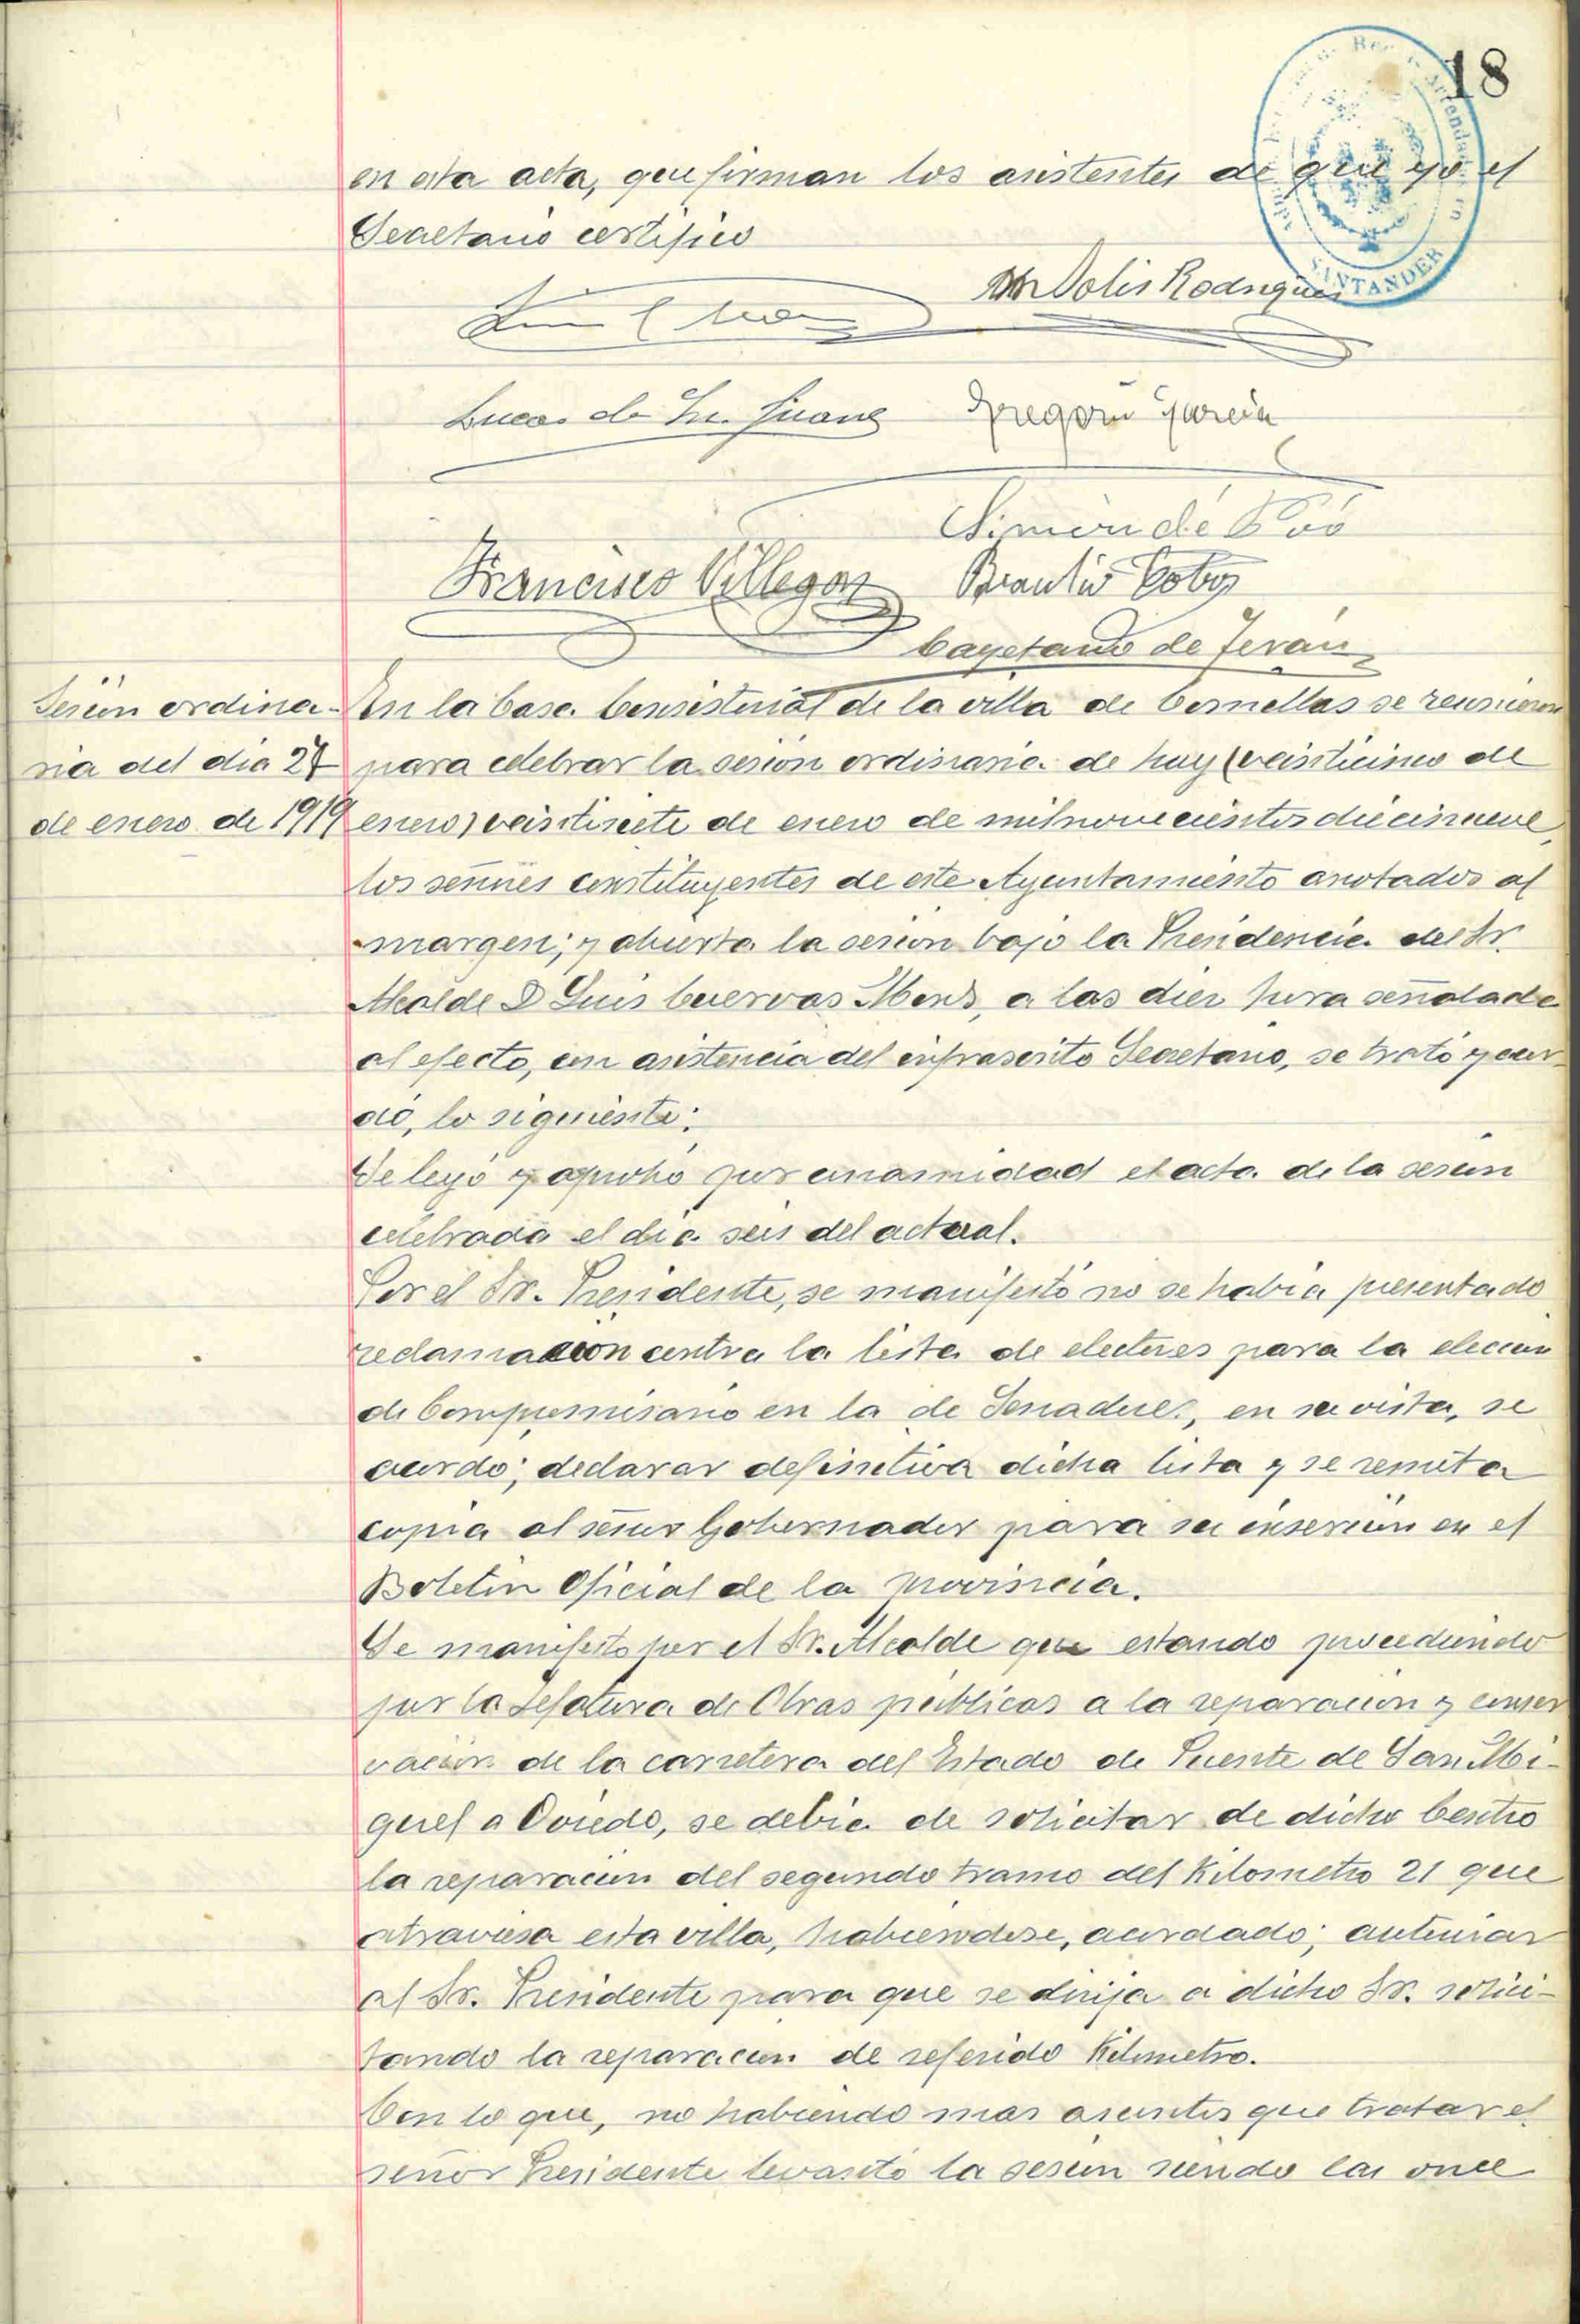 18
en esta acta, que firman los asistentes de que yo el
Secretario certifico
Solis Rodriguez
Lucas de
Gregorio Garcia
Simón de Póo
Francisco Villegas Braulio Cobos
Cayetano de Terán
Sesión ordina-
ria del dia 27
de enero de 1919
En la Casa Consistorial de la villa de Comillas se reunieron
para celebrar la sesión ordinaria de hoy (veinticinco de
enero) veintisiete de enero de mil novecientos diecinueve,
los señores constituyentes de este Ayuntamiento anotados al
margen; y abierta la sesion bajo la Presidencia del Sr.
Alcalde D Luis Cuervas Mons, a las diez hora señalada
al efecto, con asistencia del infrascrito Secretario, se trató y acor-
dó, lo siguiente:
Se leyó y aprobó por unanimidad el acta de la sesion
celebrada el dia seis del actual.
Por el Sr. Presidente, se manifestó no se habia presentado
reclamacion contra la lista de electores para la eleccion
de Compromisario en la de Senadores, en su vista, se
acordó; declarar definitiva dicha lista y se remita
copia al señor Gobernador para su inserción en el
Boletin Oficial de la provincia.
Se manifesto por el Sr. Alcalde que estando procediendo
por la Jefatura de Obras públicas a la reparacion y conser
vacion de la carretera del Estado de Puente de San Mi-
guel a Oviedo, se debia de solicitar de dicho Centro
la reparacion del segundo tramo del Kilometro 21 que
atraviesa esta villa, habiendose, acordado; autorizar
al Sr. Presidente para que se dirija a dicho Sr. solici-
tando la reparacion de referido Kilometro.
Con lo que, no habiendo mas asuntos que tratar el
señor Presidente levantó la sesion siendo las once